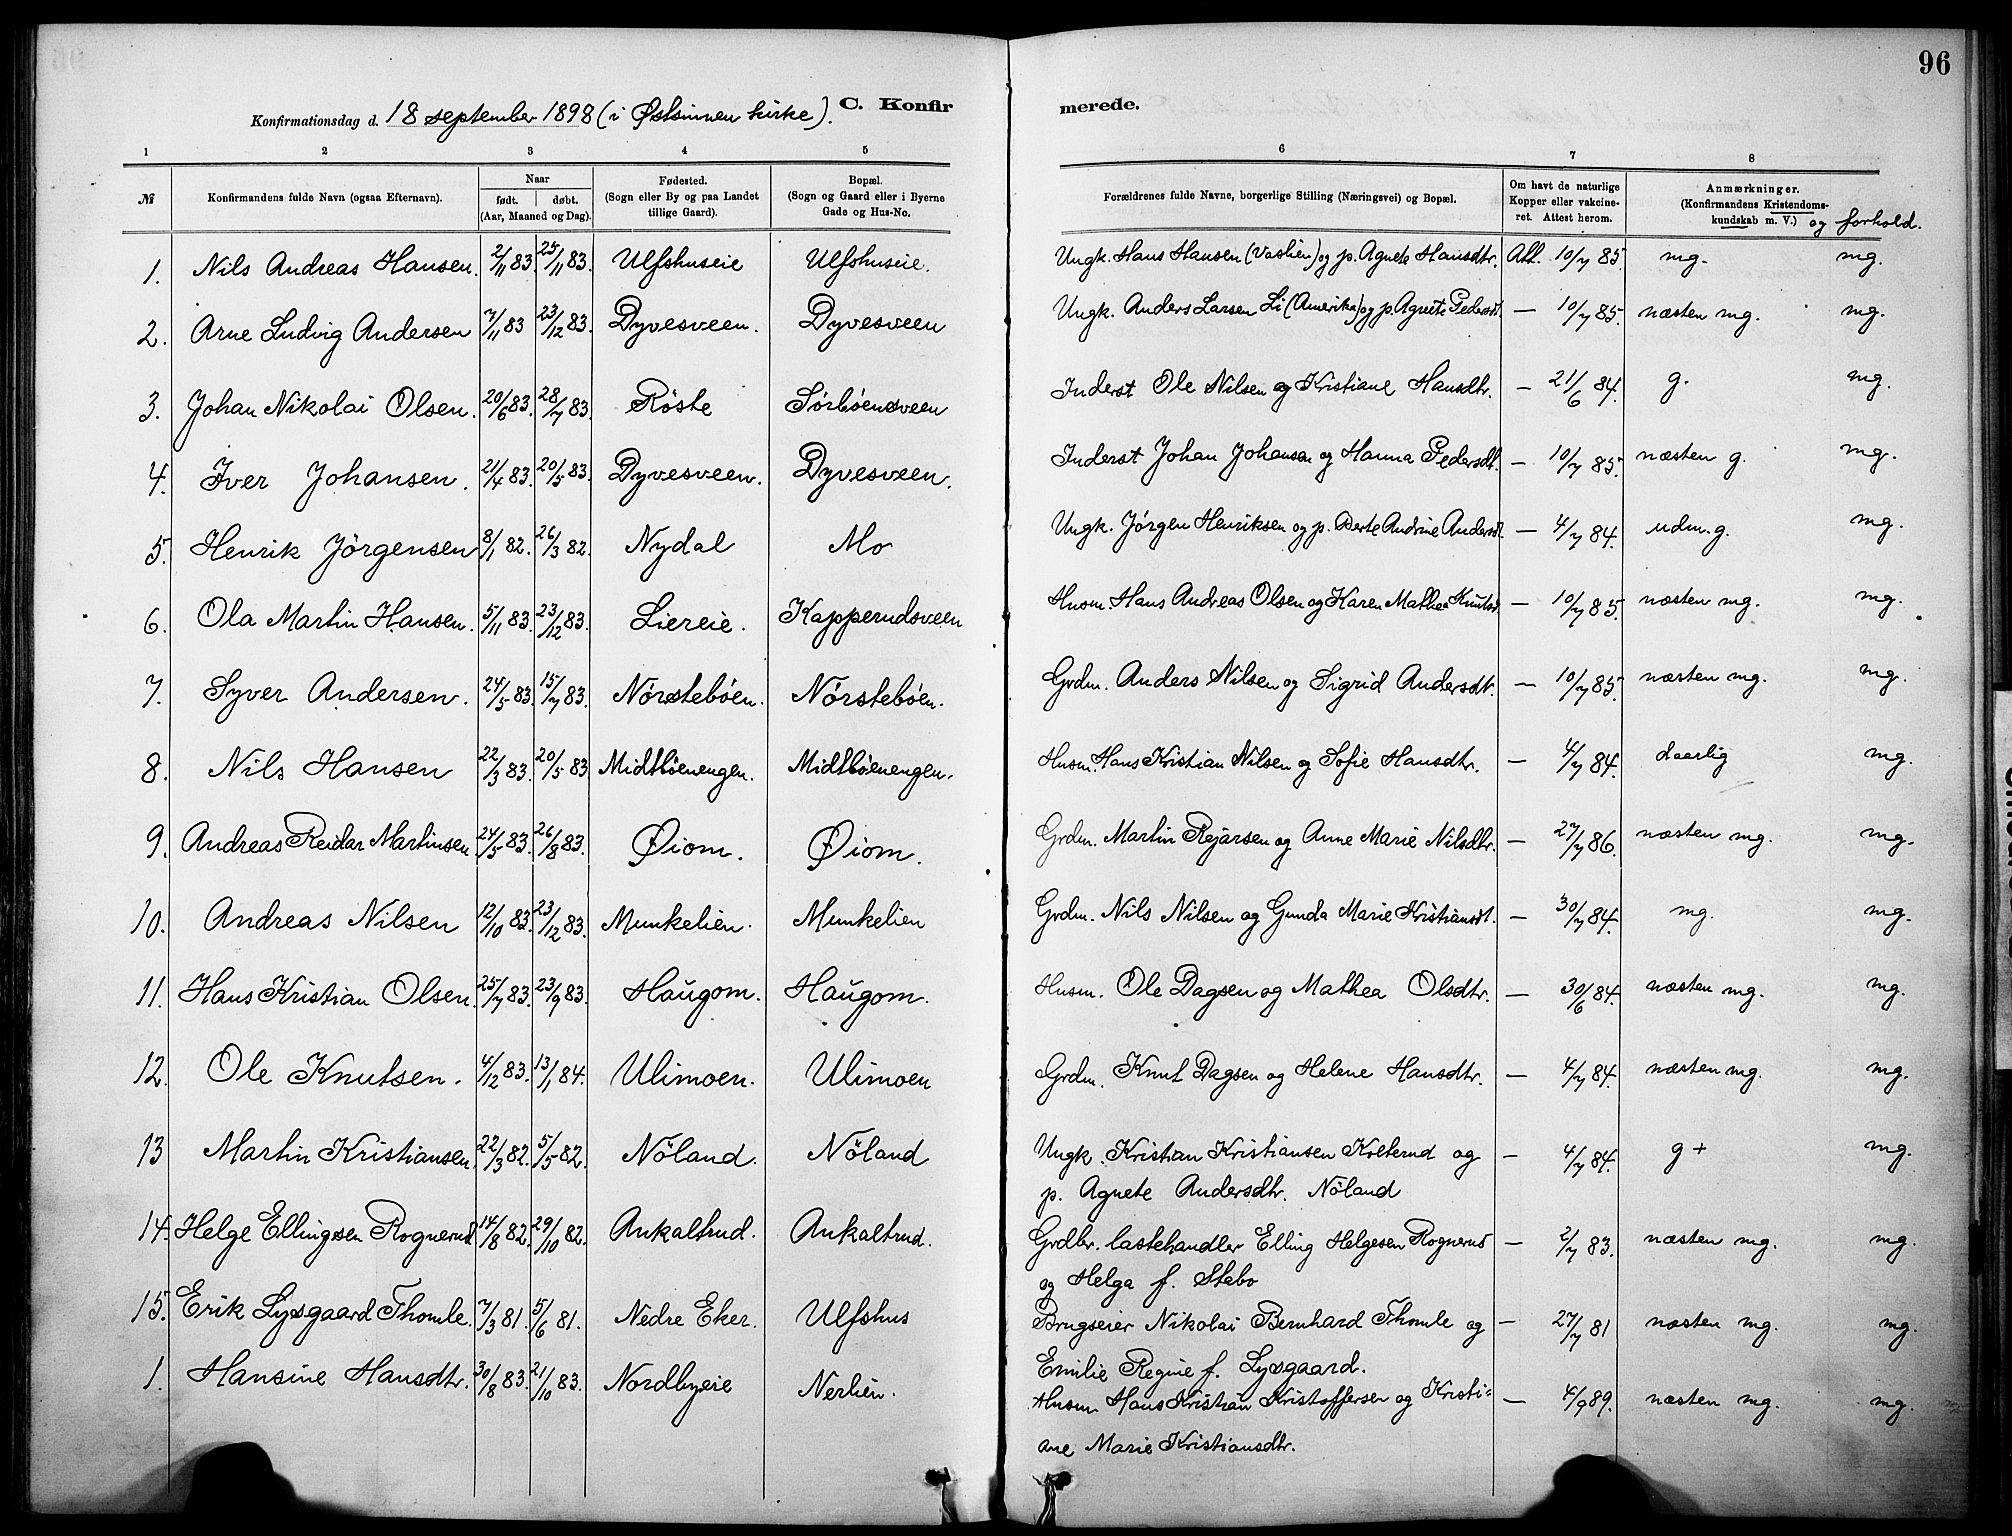 96
Konfirmationsdag d. 18 september 1898 (i Østsinnen kirke). C. Konfirmerede.
1 2 3 4 5 6 7 8
№ Konfirmandens fulde Navn (ogsaa Efternavn). Naar født. døbt. (Aar, Maaned og Dag). Fødested. (Sogn eller By og paa Landet tillige Gaard). Bopæl. (Sogn og Gaard eller i Byerne Gade og Hus-No. Forældrenes fulde Navne, borgerlige Stilling (Næringsvei) og Bopæl. Om havt de naturlige Kopper eller vakcineret. Attest herom. Anmærkninger. (Konfirmandens Kristendomskundskab m. V.) og forhold.
1. Nils Andreas Hansen. 2/11 83. 25/11 83. Ulfshuseie Ulfshuseie. Ungk. Hans Hansen (Vaslien) og p. Agnete Hansdtr. Att. 10/7 85. mg. mg.
2. Arne Ludvig Andersen 7/11 83 23/12 83. Dyvesveen. Dyvesveen Ungk. Anders Larsen Li (Amerika) og p. Agnete Pedersdt. — 10/7 85. næsten mg. mg.
3. Johan Nikolai Olsen. 20/6 83. 28/7 83. Röste Sørbøensveen Inderst Ole Nilsen og Kristiane Hansdtr. — 21/6 84. g. mg.
4. Iver Johansen. 21/4 83. 20/5 83. Dyvesveen. Dyvesveen. Inderst Johan Johansen og Hanna Pedersdt. — 10/7 85. næsten g. mg.
5. Henrik Jörgensen 8/1 82. 26/3 82. Nydal Mo Ungk. Jörgen Henriksen og p. Berte Andrine Andersd. — 4/7 84. udm. g. mg.
6. Ola Martin Hansen. 5/11 83. 23/12 83. Liereie. Kapperudsveen Husm. Hans Andreas Olsen og Karen Mathea Knutsd — 10/7 85. næsten mg. mg.
7. Syver Andersen. 24/5 83. 15/7 83. Nörstebóen. Nörstebóen. Grdm. Anders Nilsen og Sigrid Andersdt. — 10/7 85. næsten mg. mg.
8. Nils Hansen 22/3 83. 20/5 83 Midtbóenengen. Midtbóenengen. Husm. Hans Kristian Nilsen og Sofie Hansdtr. — 4/7 84. daarlig mg.
9. Andreas Reidar Martinsen 24/5 83. 26/8 83. Øiom. Øiom. Grdm. Martin Rejarsen og Anne Marie Nilsdtr. — 27/7 86. næsten mg. mg.
10. Andreas Nilsen 12/10 83. 23/12 83. Munkelien. Munkelien Grdm. Nils Nilsen og Gunda Marie Kristiansdt. — 30/7 84. mg. mg.
11. Hans Kristian Olsen. 25/7 83. 23/9 83. Haugom. Haugom. Husm. Ole Dagsen og Mathea Olsdtr. — 30/6 84. næsten mg. mg.
12. Ole Knutsen. 4/12 83. 13/1 84. Ulimoen. Ulimoen Grdm. Knut Dagsen og Helene Hansdtr. — 4/7 84. næsten mg. mg.
13 Martin Kristiansen. 22/3 82. 5/5 82. Nöland. Nöland Ungk. Kristian Kristiansen Kolterud og — 4/7 84. g + mg.
p. Agnete Andersdtr. Nöland
14. Helge Ellingsen Rognerud 14/8 82. 29/10 82. Aukaltrud. Aukaltrud. Grdbr. lastehandler Elling Helgesen Rognerud — 2/7 83. næsten mg. mg.
og Helga f. Stabo
15. Erik Lysgaard Thomle. 7/3 81. 5/6 81. Nedre Eker. Ulfshus Brugseier Nikolai Bernhard Thomle og — 27/7 81 næsten mg. mg.
Emilie Regine f. Lysgaard.
1. Hansine Hansdtr. 30/8 83. 21/10 83. Nordbyeie Nerlien. Husm Hans Kristian Kristoffersen og Kristi= — 4/9 89. næsten mg. mg.
ane Marie Kristiansdtr.